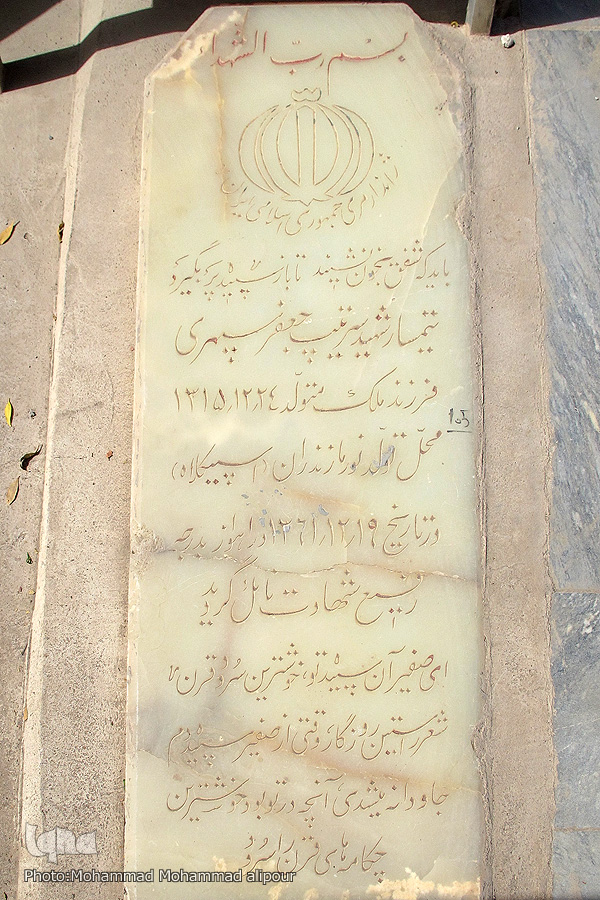 بسم ربّ الشهدا
ژاندارمری جمهوری اسلامی ایران
باید که شفق بخون نشیند تا باز سپیده پر بگیرد
تیمسار شهید سرتیپ جعفر سپهری
فرزند ملک متولّد ۱۳۱۵٫۱۲٫۲۴
محلّ تولّد نور مازندران (اسپیکلاه)
در تاریخ ۱۳۶۱٫۱۲٫۱۹ در اهواز بدرجه
رفیع شهادت نائل گردید
ای صفیر آن سپیده تو، خوشترین سرود قرن
شعر راستین روزگار، وقتی از صفیر سپیده دم
جاودانه میشدی، آنچه در تو بود خوشترین
چکامه های قرن را سرود
iqna
Photo:Mohammad Mohammad alipour